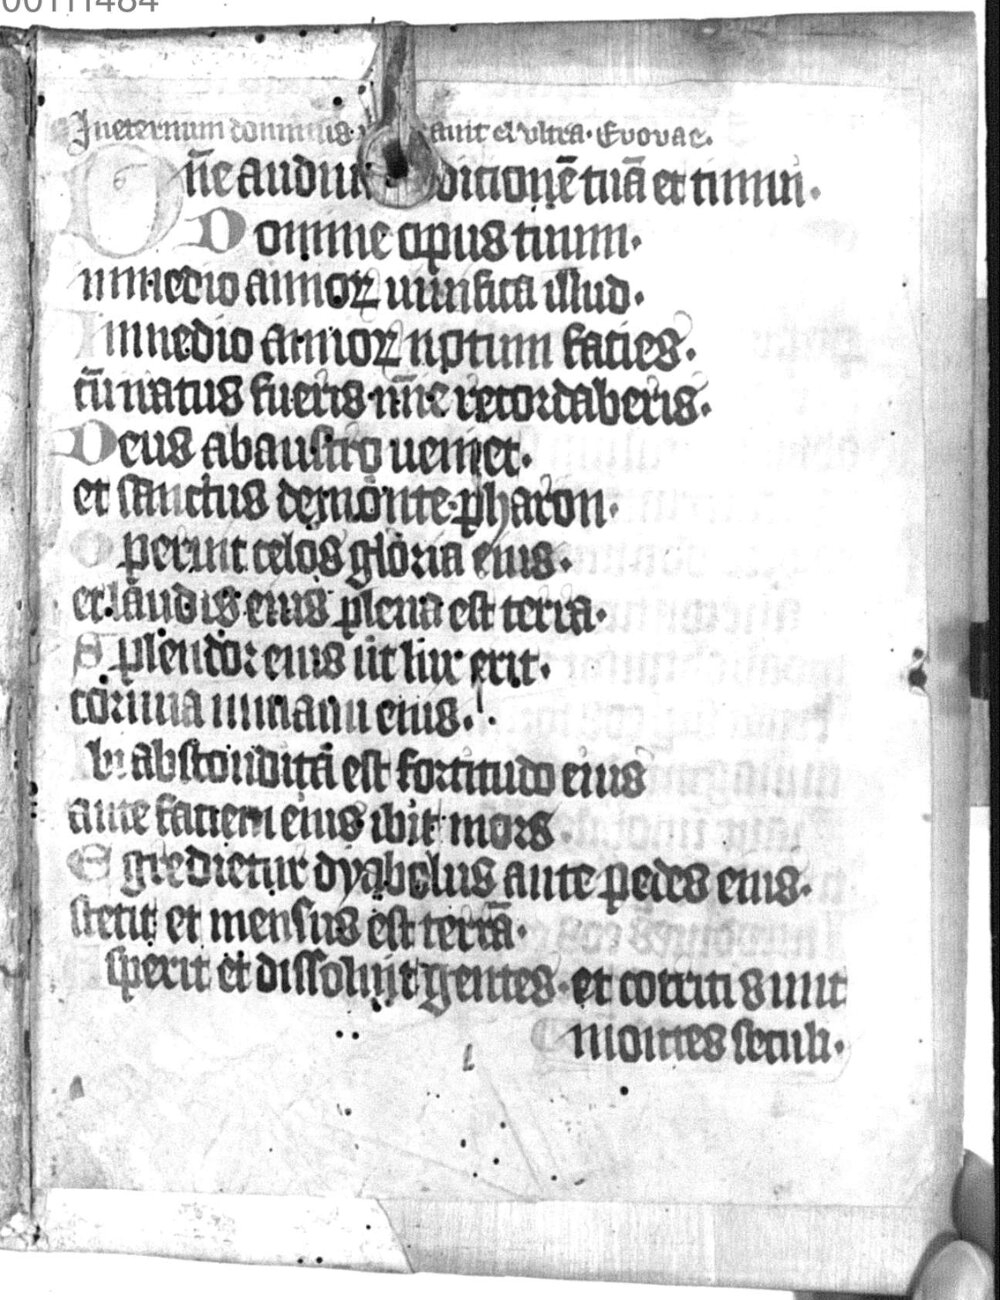 00111484
In eternum dominus auit et ultra. Euouae.
Dn̄e audiui ditionē tuā et timui.
Domine opus tuum.
in medio annoꝝ uiuifica illud.
In medio annoꝝ notum facies.
cū iratus fueris mīe recordaberis.
Deus ab austro ueniet.
et sanctus de monte pharon.
Operuit celos gloria eius.
et laudis eius plena est terra.
Splendor eius ut lux erit.
cornua in manu eius.
Ibi absconditā est fortitudo eius
ante faciem eius ibit mors.
Egredietur dyabolus ante pedes eius.
stetit et mensus est terrā.
Asperit et dissoluit gentes. et contriti sunt
montes seculi.